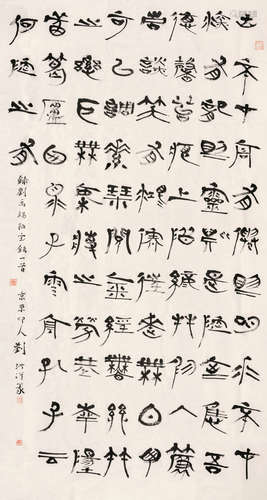 山不在高有僊則名水不在
深有龍則靈斯是陋室惟吾
德馨苔痕上階綠草色入簾
青談笑有鴻儒往來無白丁
可以調素琴閱金經無絲竹
之亂耳無案牘之勞形南陽
諸葛廬西蜀子雲亭孔子云
何陋之有
錄劉禹錫陋室銘一首 京華印人劉